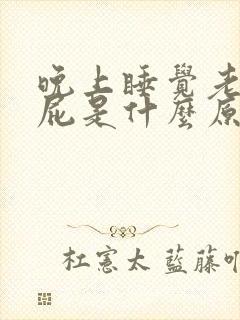 晚上睡覺老
屁是什麼原
杜憲太 藍藤吖